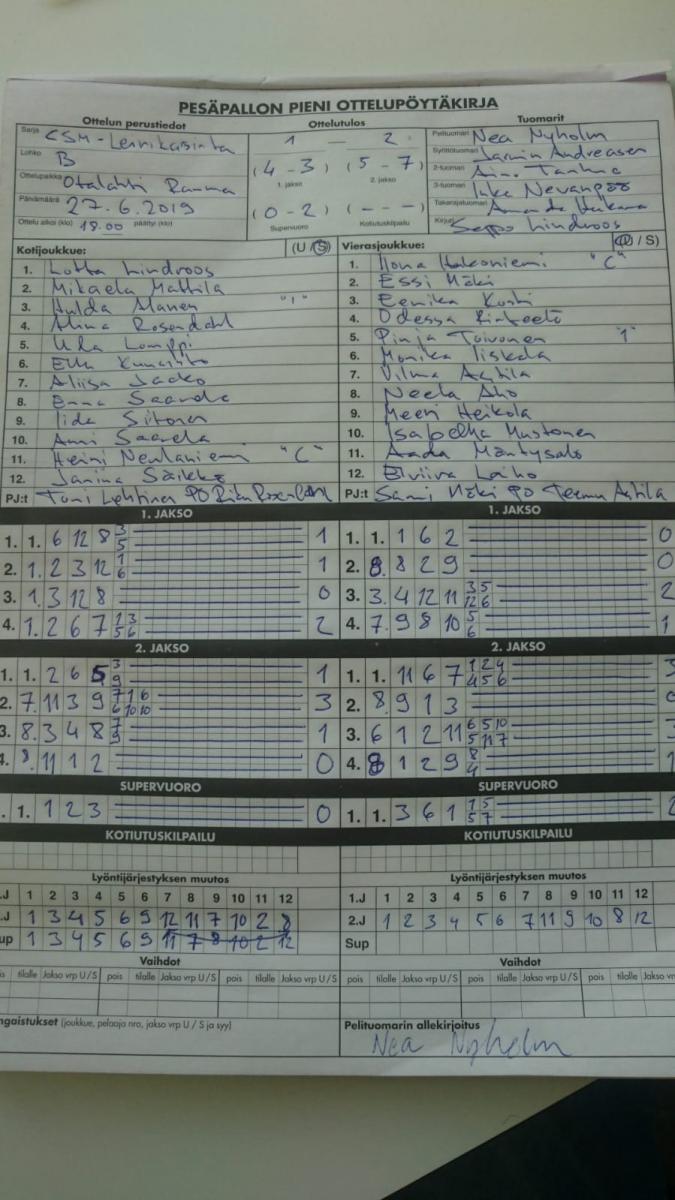 PESÄPALLON PIENI OTTELUPÖYTÄKIRJA
Ottelun perustiedot Ottelutulos Tuomarit
Sarja CSM-Lennikaisinta 1 — 2 Pelituomari Nea Nyholm
Lohko B (4-3) (5-7) Syöttötuomari Jasmin Andreasen
1. jakso 2. jakso
Ottelupaikka Otalahti Rauma 2-tuomari Aino
Päivämäärä 27.6.2019 (0-2) (---) 3-tuomari Nevanpää
Ottelu alkoi (klo) 18.00 päättyi (klo) Supervuoro Kotiutuskilpailu Takarajatuomari
Kirjuri Seppo Lindroos
Kotijoukkue: (U / S) Vierasjoukkue: (U / S)
1. Lotta Lindroos 1. Ilona Hakoniemi "C"
2. Mikaela Mattila 2. Essi Mäki
3. Hulda Alanen "1" 3. Eerika Koski
4. Alina Rosendahl 4. Odessa
5. Ulla Lomppi 5. Pinja Toivonen "1"
6. Ella 6. Monika Iiskala
7. Aliisa Jadko 7. Vilma Ahtila
8. Enna Saarela 8. Neela Aho
9. Iida Siltonen 9. Meeri Heikola
10. Anni Saarela 10. Isabella Mustonen
11. Heini Neulaniemi "C" 11. Aada Mäntysalo
12. Janina Säikkö 12. Elviira Laiho
PJ:t Tomi Lehtinen PO Riku Rosendahl PJ:t Sami Mäki PO Teemu Ahtila
1. JAKSO 1. JAKSO
1. 1. 6 12 8 3 5 1 1. 1. 1 6 2 0
2. 1. 2 3 12 1 6 1 2. 8. 8 2 9 0
3. 1. 3 12 8 0 3. 3. 4 12 11 3 5 12 6 2
4. 1. 2 6 7 1 3 5 6 2 4. 7. 9 8 10 5 6 1
2. JAKSO 2. JAKSO
1. 1. 2 6 5 3 9 1 1. 1. 11 6 7 1 2 4 4 5 6 3
2. 7. 11 3 9 7 1 6 6 10 10 3 2. 8. 9 1 3 0
3. 8. 3 4 8 7 9 1 3. 6 1 2 11 6 5 10 5 11 7 3
4. 8. 11 1 2 0 4. 8 1 2 9 8 4 1
SUPERVUORO SUPERVUORO
1. 1. 1 2 3 0 1. 1. 3 6 1 1 5 5 7 2
KOTIUTUSKILPAILU KOTIUTUSKILPAILU
Lyöntijärjestyksen muutos Lyöntijärjestyksen muutos
.J 1 2 3 4 5 6 7 8 9 10 11 12 1.J 1 2 3 4 5 6 7 8 9 10 11 12
.J 1 3 4 5 6 9 12 11 7 10 2 8 2.J 1 2 3 4 5 6 7 11 9 10 8 12
up 1 3 4 5 6 9 11 7 8 10 2 12 Sup
Vaihdot Vaihdot
is tilalle Jakso vrp U / S pois tilalle Jakso vrp U / S pois tilalle pois tilalle Jakso vrp U / S pois tilalle Jakso vrp U / S pois tilalle Jakso vrp
ngaistukset (joukkue, pelaaja nro, jakso vrp U / S ja syy) Pelituomarin allekirjoitus
Nea Nyholm